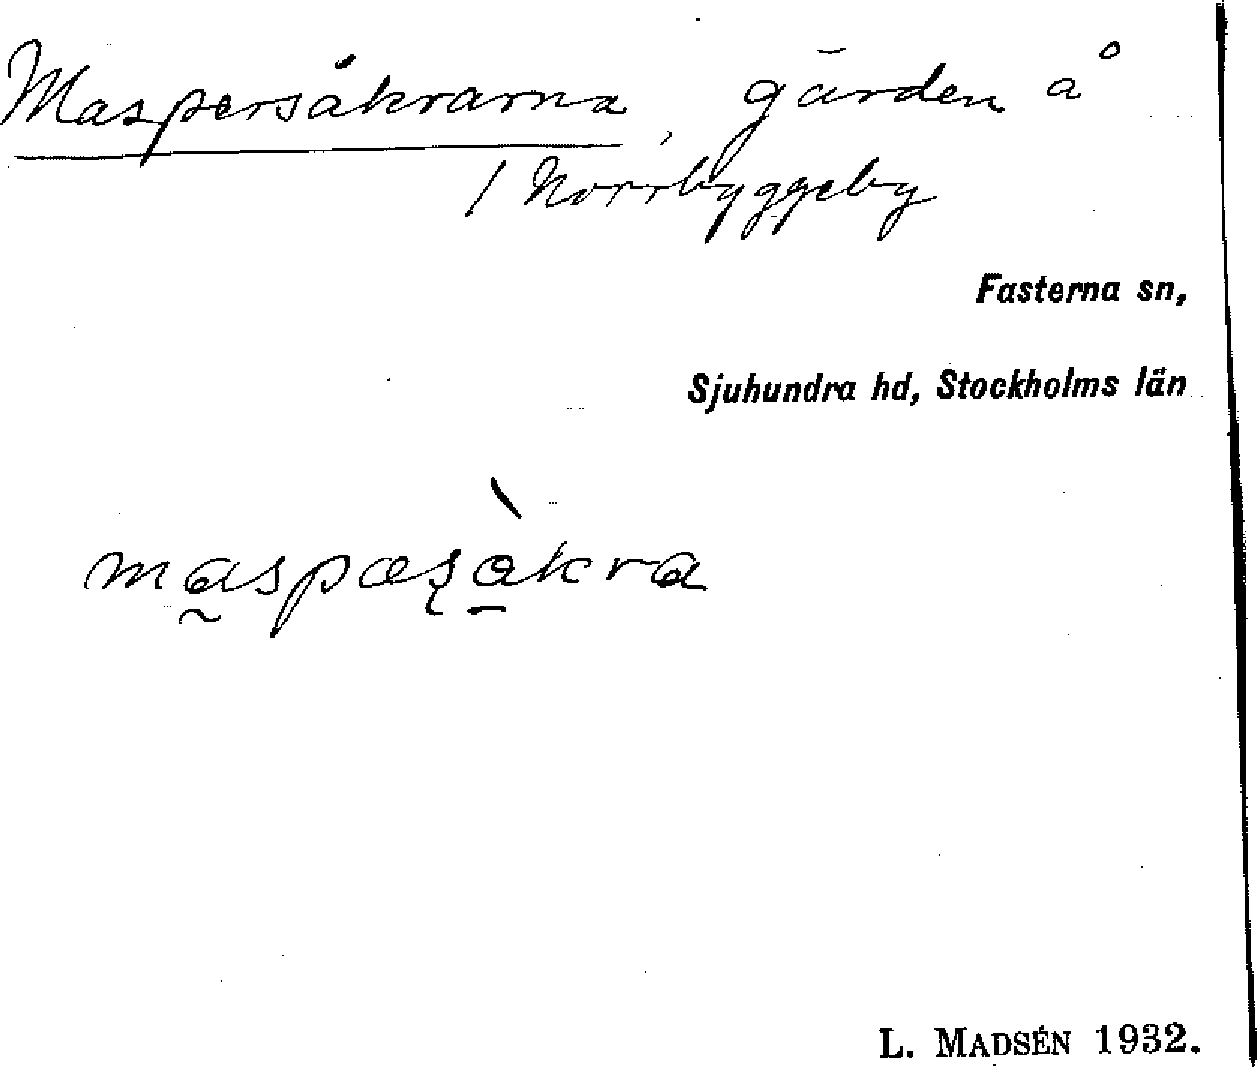 Maspersåkrarna, gärden å
/ Norrbyggeby
Fasterna sn,
Sjuhundra hd, Stockholms län
maspæșàkra
L. MADSÉN 1932.